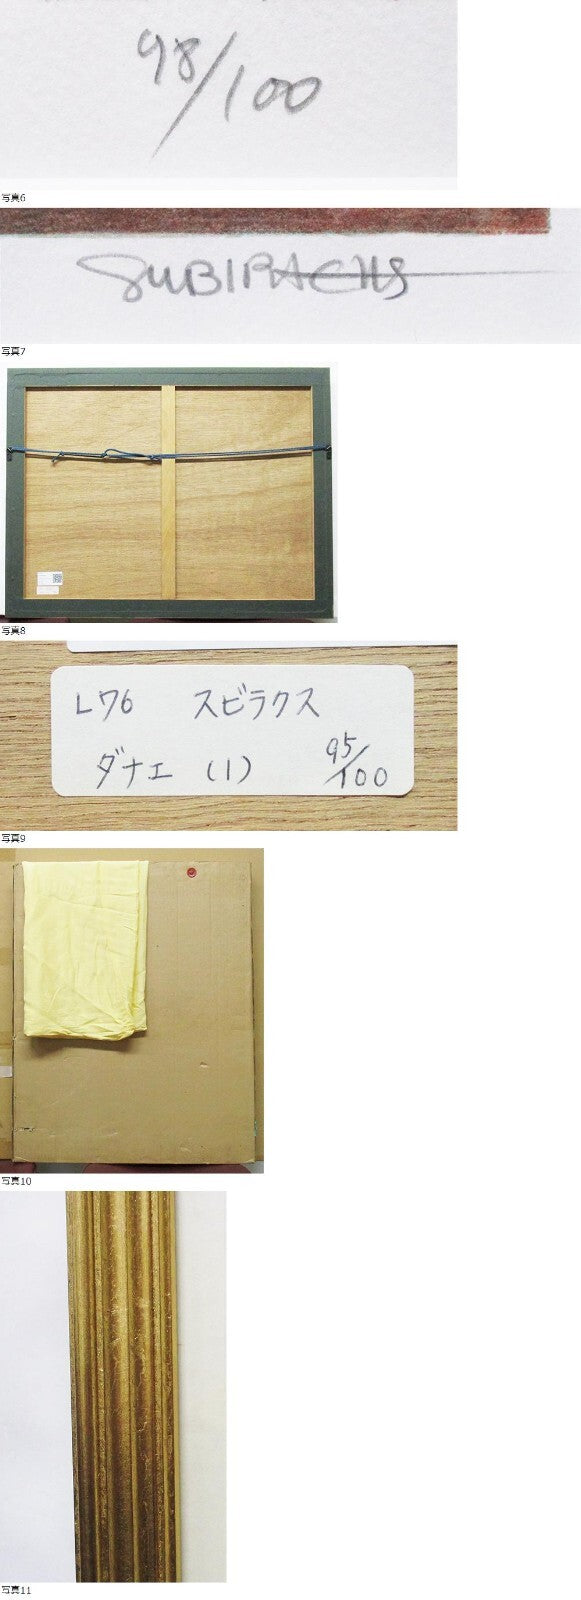 98/100
写真6
SUBIRACHS
写真7
写真8
L76 スビラクス
ダナエ (1) 95/100
写真9
写真10
写真11